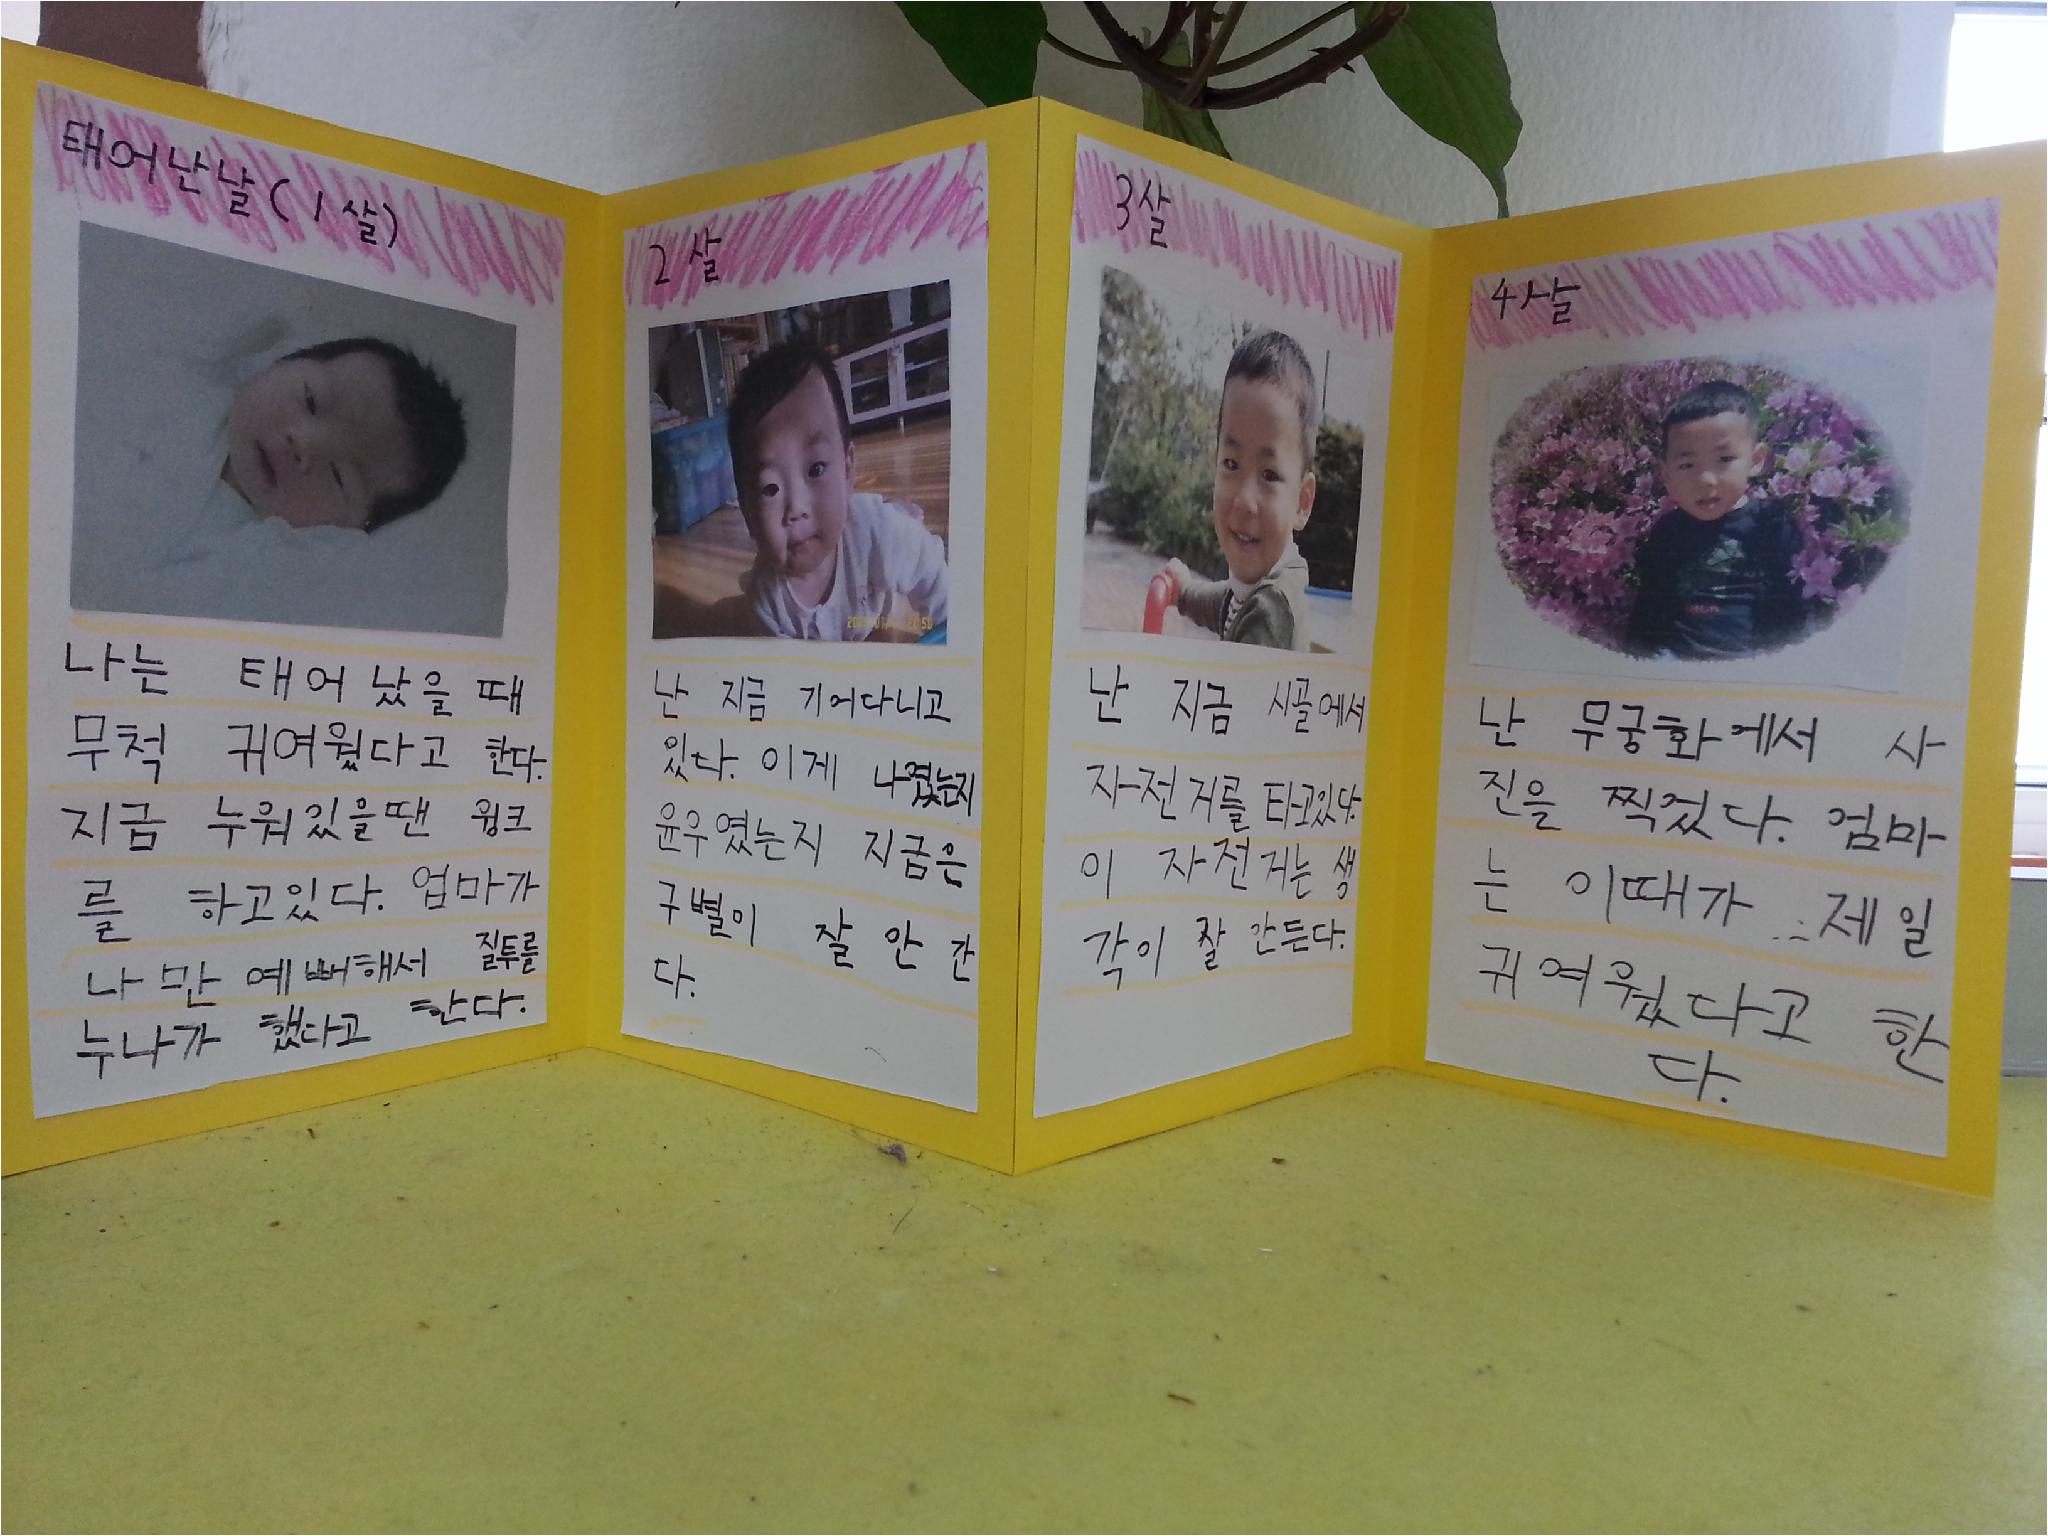 태어난날(1살)
나는 태어났을때
무척 귀여웠다고 한다.
지금 누워있을땐 윙크
를 하고있다. 엄마가
나만 예뻐해서 질투를
누나가 했다고 한다.
2살
난 지금 기어다니고
있다. 이게 나였는지
윤우였는지 지금은
구별이 잘 안 간
다.
3살
난 지금 시골에서
자전거를 타고있다.
이 자전거는 생
각이 잘 간든다.
4살
난 무궁화에서 사
진을 찍겄다. 엄마
는 이때가 제일
귀여웠다고 한
다.